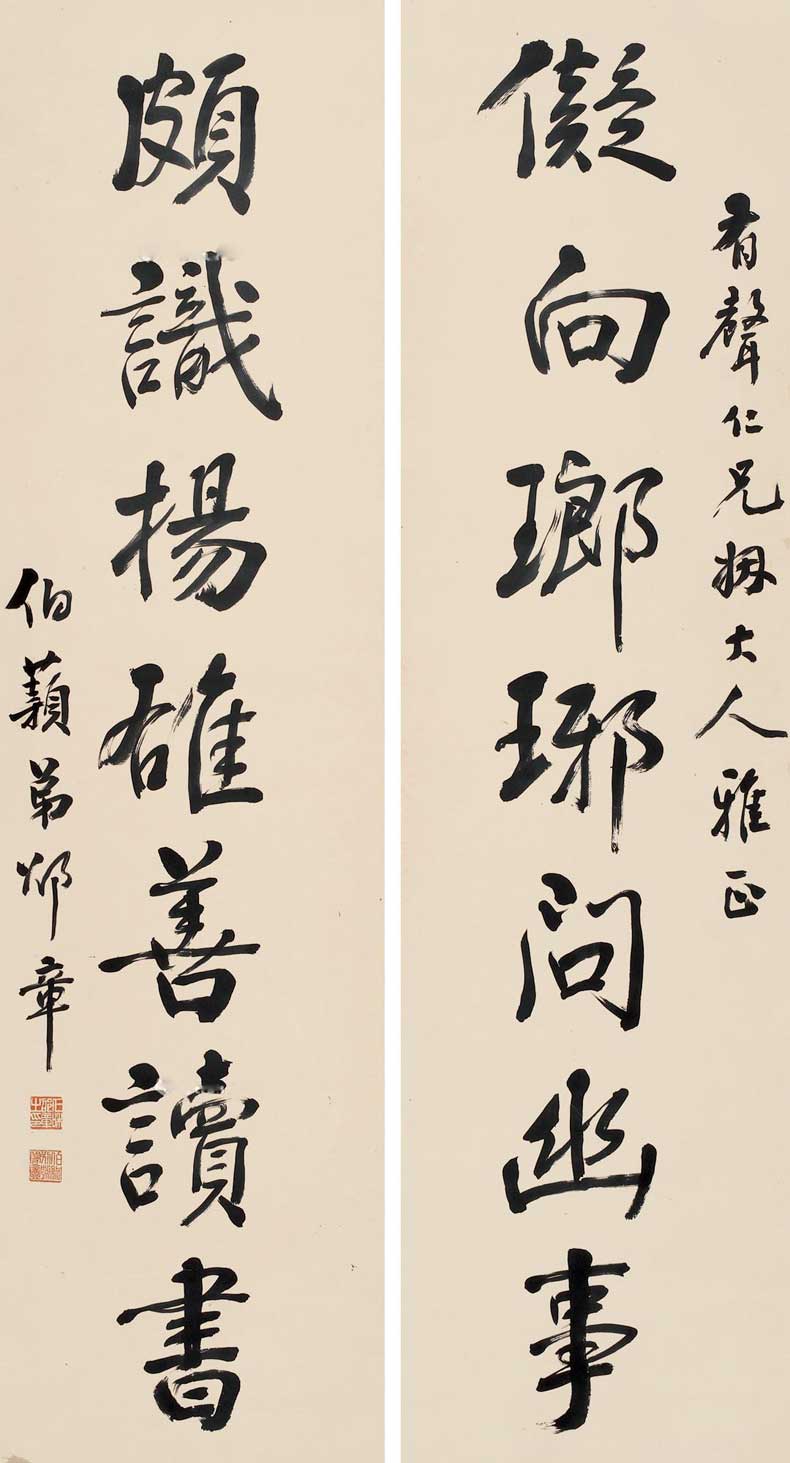 儗向瑯琊問幽事
頗識揚雄善讀書
有聲仁兄姻大人雅正
伯弟章